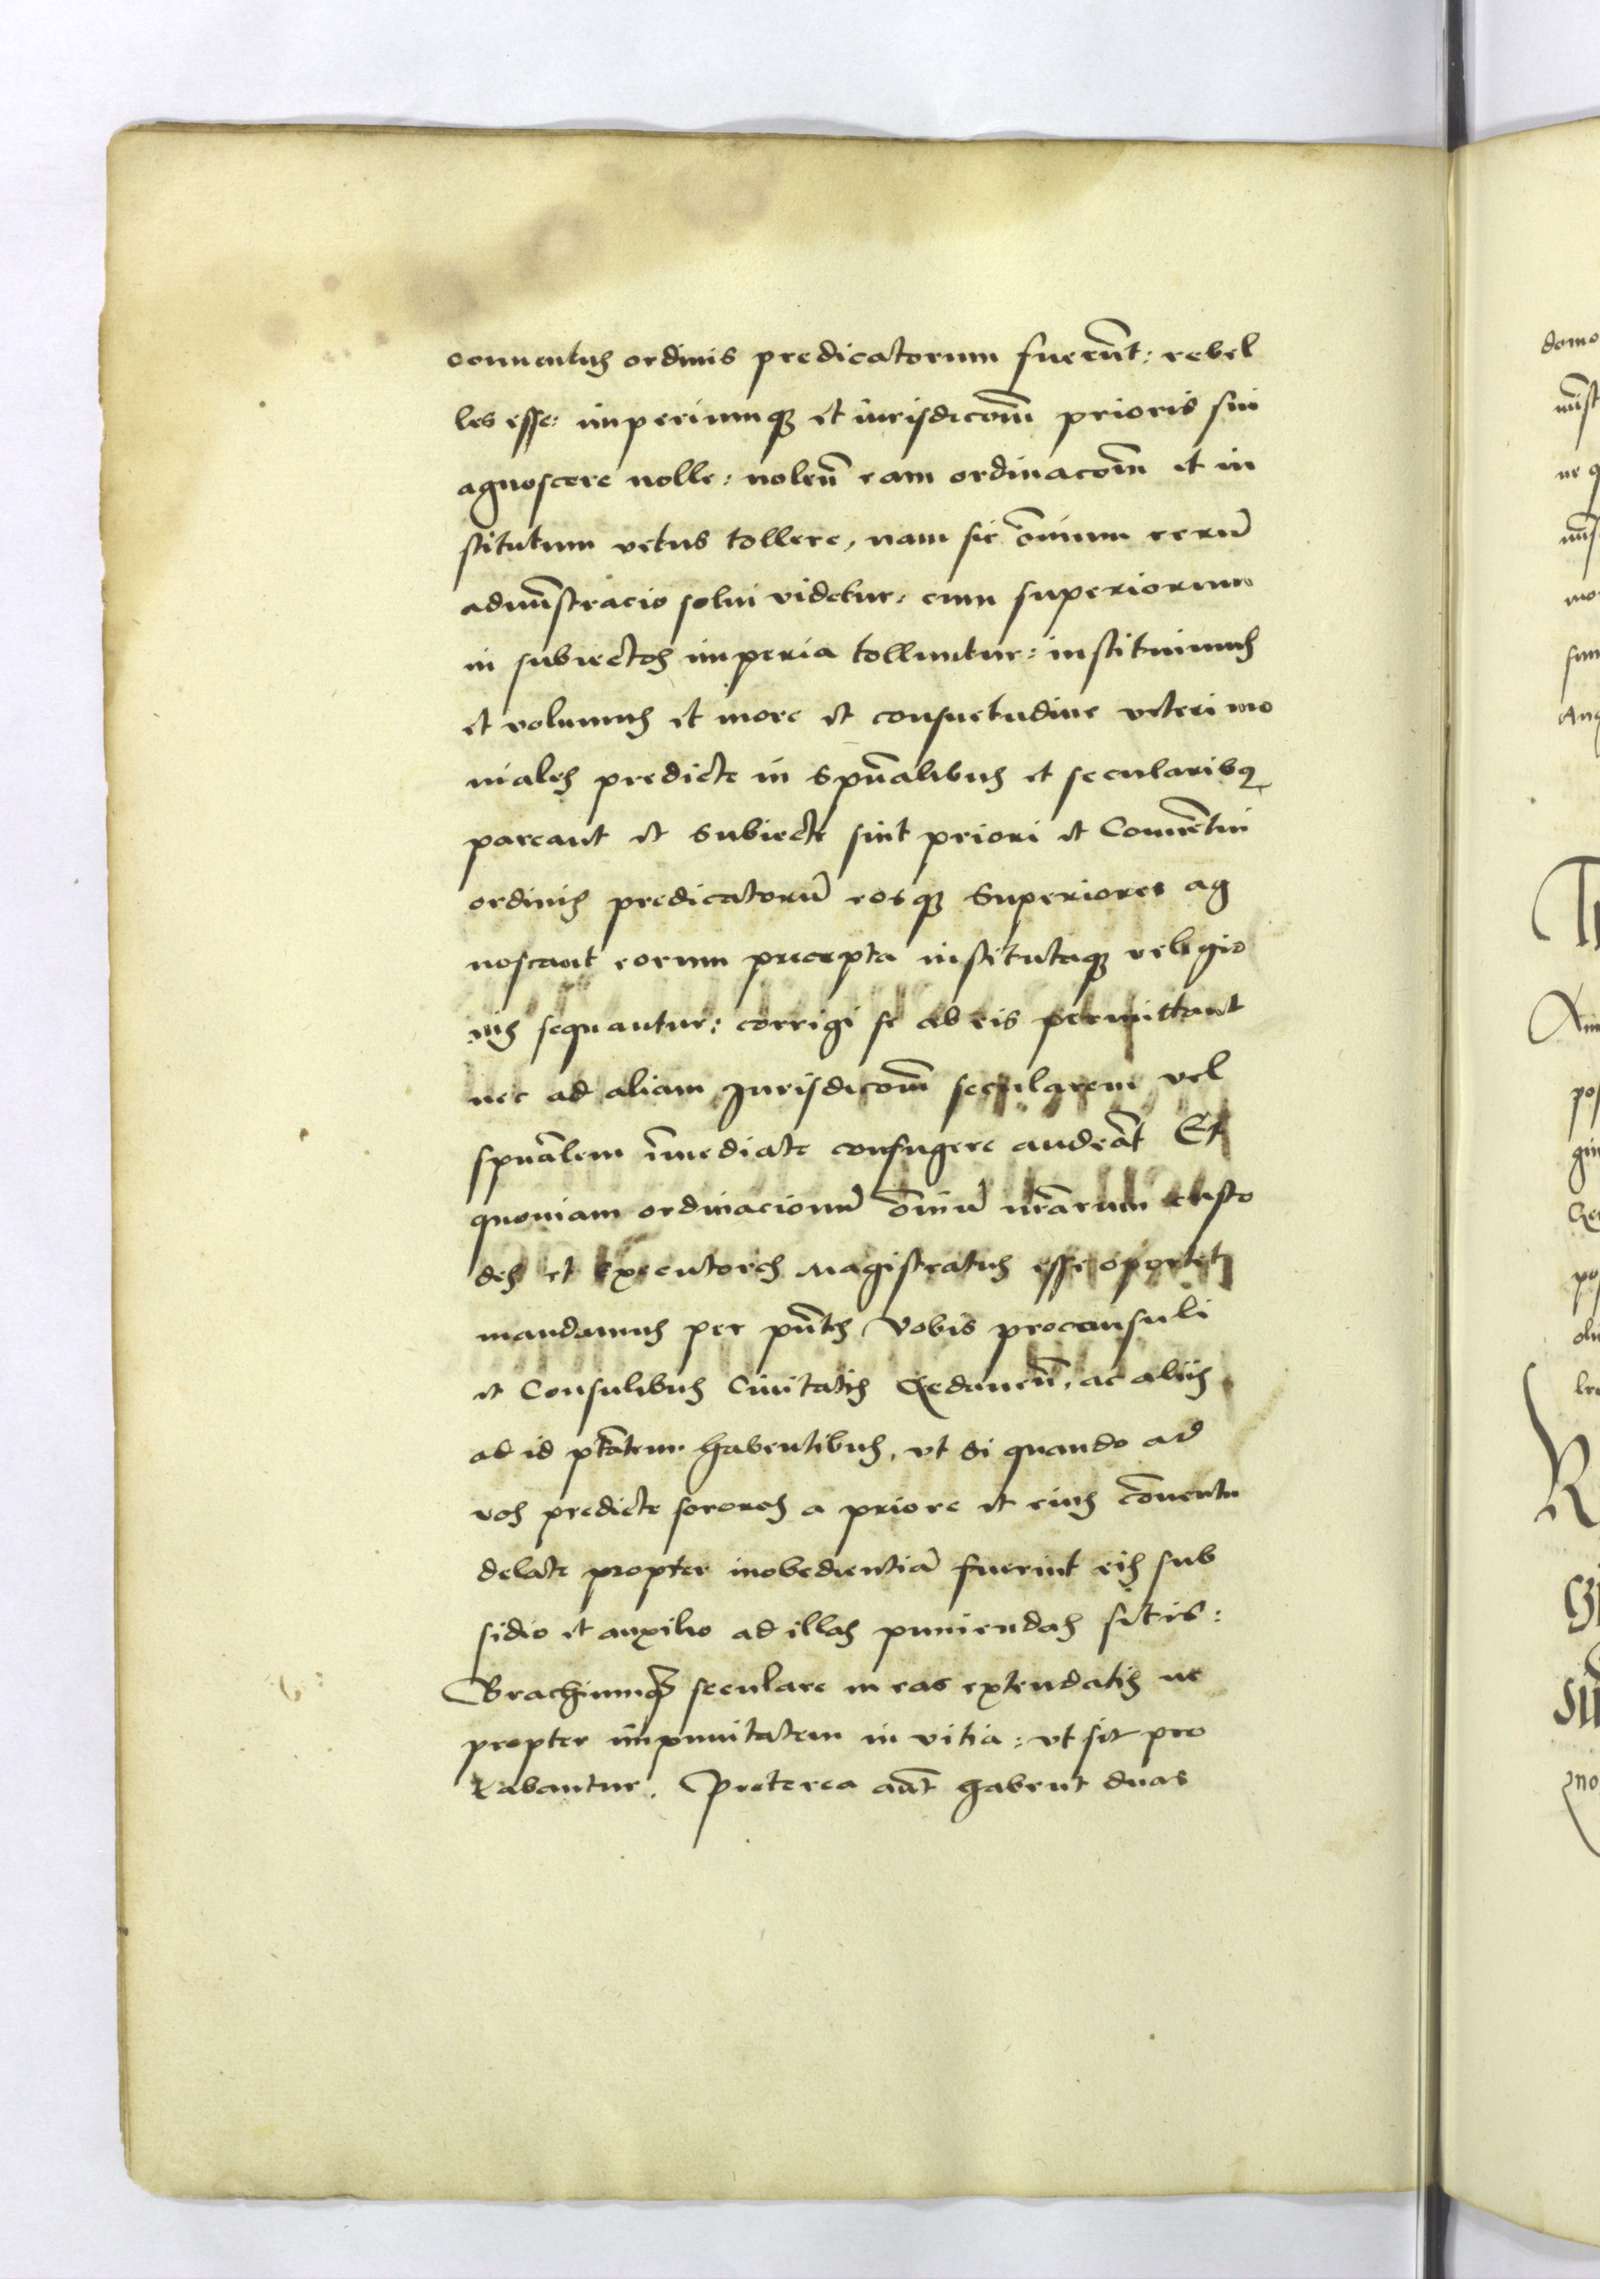 conuentus ordinis predicatorum fuerūt: rebel
les esse: imperiumq3 et iurisdicōm̄ prioris sui
agnoscere nolle: nolen̄ eam ordinacōm̄ et in
stitutum vetus tollere, nam sic om̄nium rerū
adm̄istracio solui videtur: cum superiorum
in subiectos imperia tolluntur: instituimus
et volumus et more et consuetudine veteri mo
niales predicte in sp̄ualibus et secularibq
pareant et subiecte sint priori et Conuētui
ordinis predicatorū eosq3 Superiores ag
noscant eorum precepta institutaq3 religio
nis sequantur: corrigi se ab eis permittant
nec ad aliam Jurisdicōm̄ secularem vel
spūalem īmediate confugere audeāt Et
quoniam ordinacionū ōmiū nr̄arum custo
des et executores Magistratus esse oportet
mandamus per pn̄tes Vobis proconsuli
et Consulibus Ciuitatis Gedanen̄. ac aliis
ad id ptātem habentibus, vt si quando ad
vos predicte sorores a priore et eius cōuentu
delate propter inobedientiā fuerint eis sub
sidio et auxilio ad illas puniendas sitis:
Brachiumq3 seculare in eas extendatis ne
propter impunitatem in vitia: vt sit pro
labantur. Preterea aūt habent duas
domo